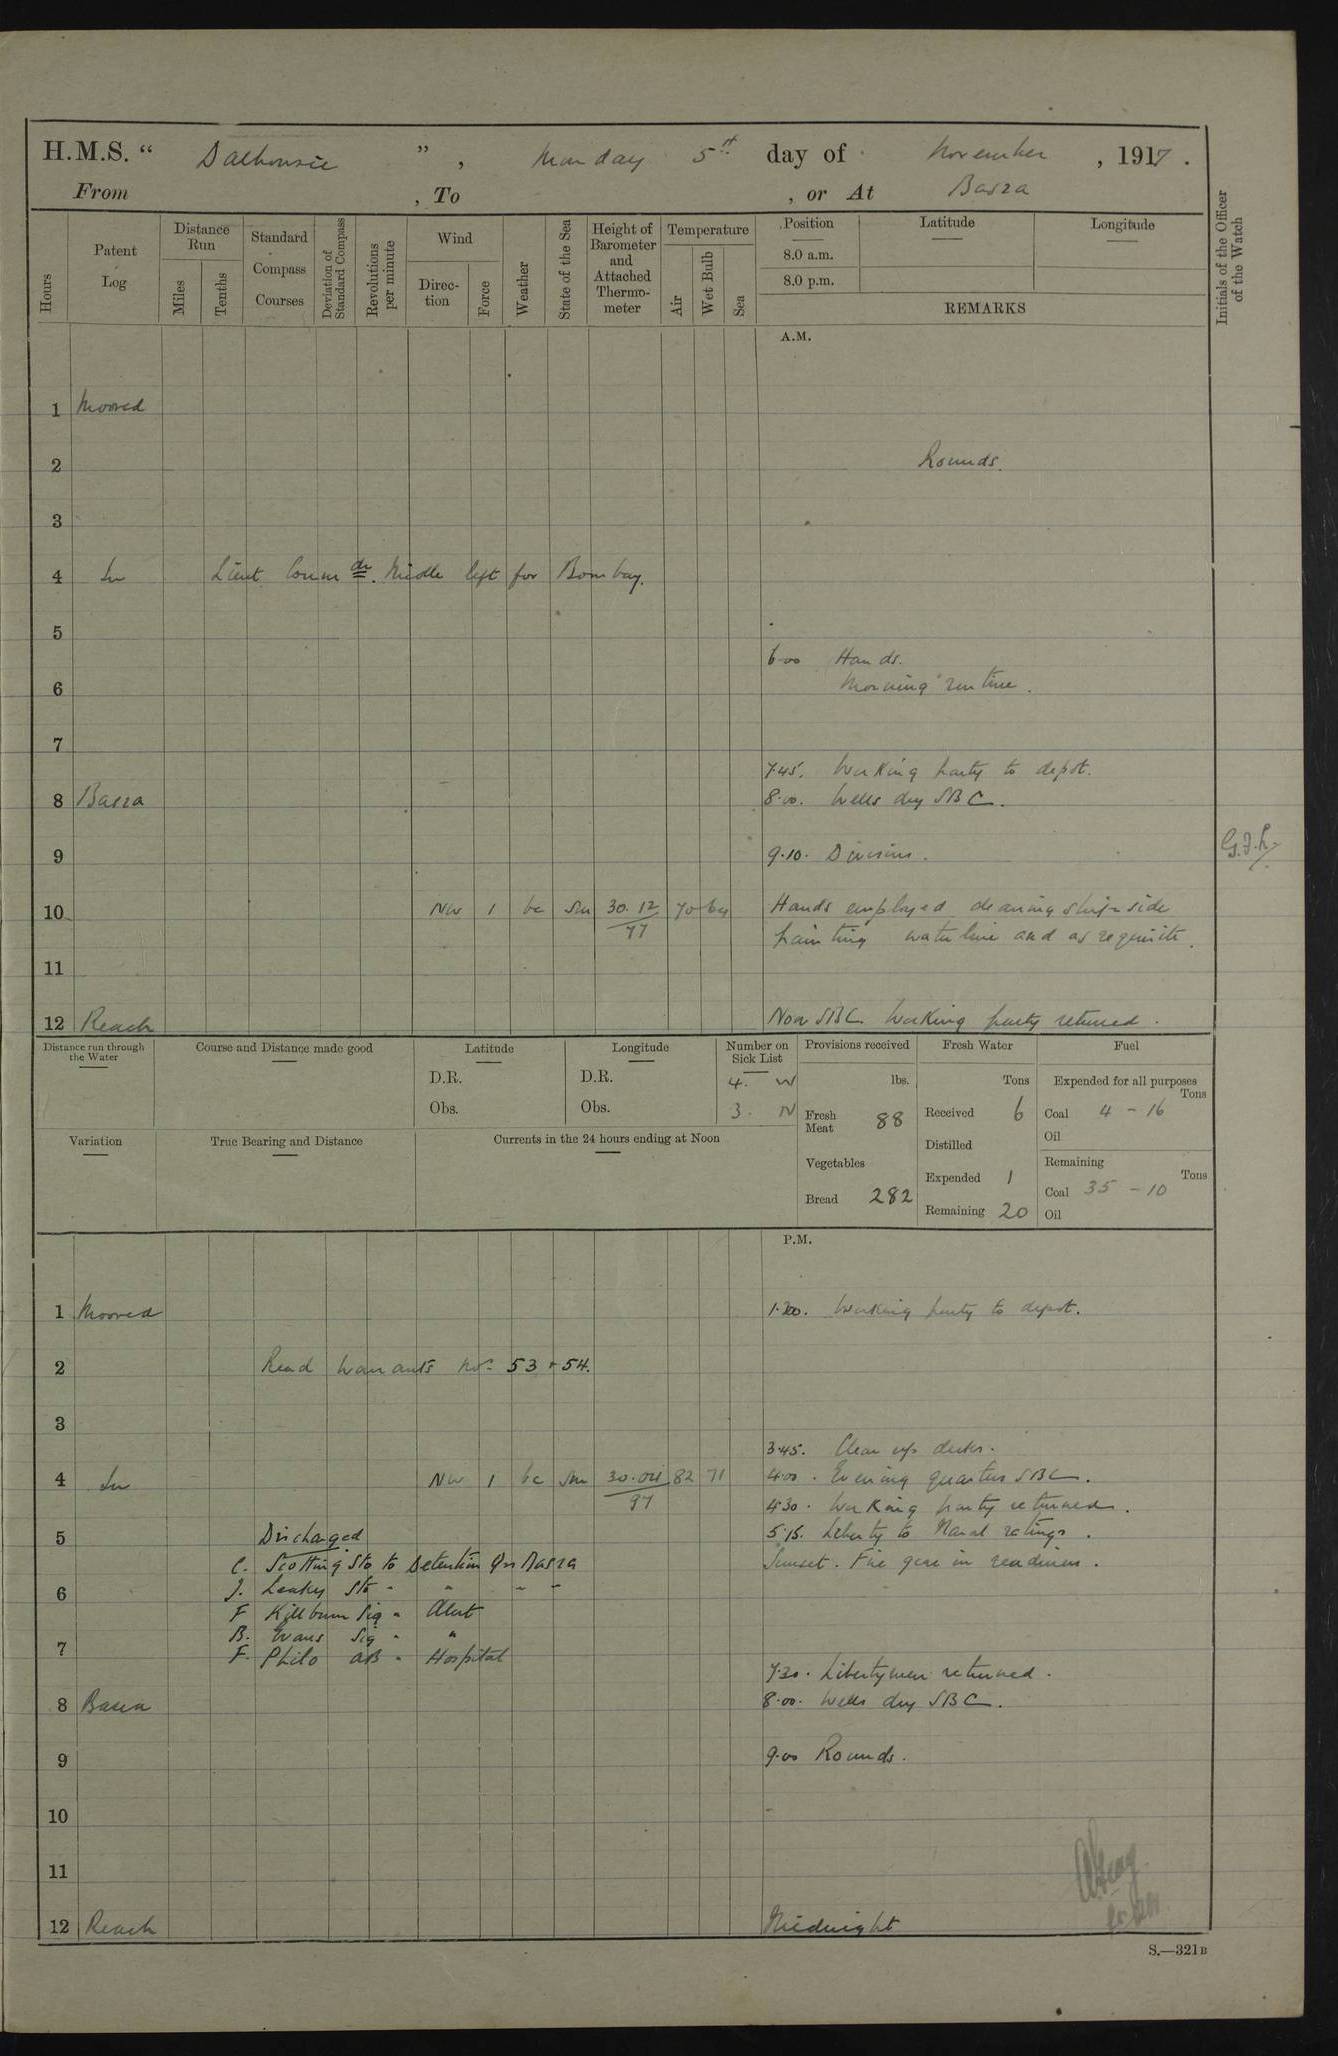 H.M.S. “ Dalhousie ” , Monday 5th day of November , 1917 .
From , To , or At Basra
Hours
Patent Log
Distance Run
Miles
Tenths
Standard Compass Courses
Deviation of Standard Compass
Revolutions per minute
Wind
Direction
Force
Weather
State of the Sea
Height of Barometer and Attached Thermometer
Temperature
Air
Wet Bulb
Sea
Position
8.0 a.m.
8.0 p.m.
Latitude
Longitude
REMARKS
Initials of the Officer of the Watch
A.M.
1 Moored
2 Rounds.
3
4 In Lieut Commdr. Middle left for Bombay.
5
6.00 Hands.
6 Morning routine.
7
7.45. Working party to depot.
8 Basra 8.00. Wells dry SBC.
9 9.10. Divisions.
10 NW 1 bc Sm 30.12 70 Hands employed cleaning ships side
77 painting waterline and as requisite.
11
12 Reach Noon SBC Working party returned.
Distance run through the Water
Course and Distance made good
Latitude
D.R.
Obs.
Longitude
D.R.
Obs.
Number on Sick List
4. W
3. N
Provisions received
lbs.
Fresh Meat 88
Vegetables
Bread 282
Fresh Water
Tons
Received 6
Distilled
Expended 1
Remaining 20
Fuel
Expended for all purposes
Tons
Coal 4 - 16
Oil
Remaining
Tons
Coal 35 - 10
Oil
Variation
True Bearing and Distance
Currents in the 24 hours ending at Noon
P.M.
1 Moored Working party to depot.
2 Read Warrants No. 53 + 54.
3
3.45. Clear up decks.
4 In NW 1 bc Sm 30.04 82 71 4.00. Evening quarters SBC.
97 4.30. Working party returned.
5 Discharged 5.15. Liberty to Naval ratings.
C. Scotting Sto to Detention Qrs Basra Sunset. Fire gear in readiness.
6 J. Leaky Sto " " " "
F Killburn Sig " Alert
B. Evans Sig " "
7 F. Philo AB " Hospital
7.30. Libertymen returned.
8 Basra 8.00. Wells dry SBC.
9 9.00 Rounds.
10
11
12 Reach Midnight
S.—321B